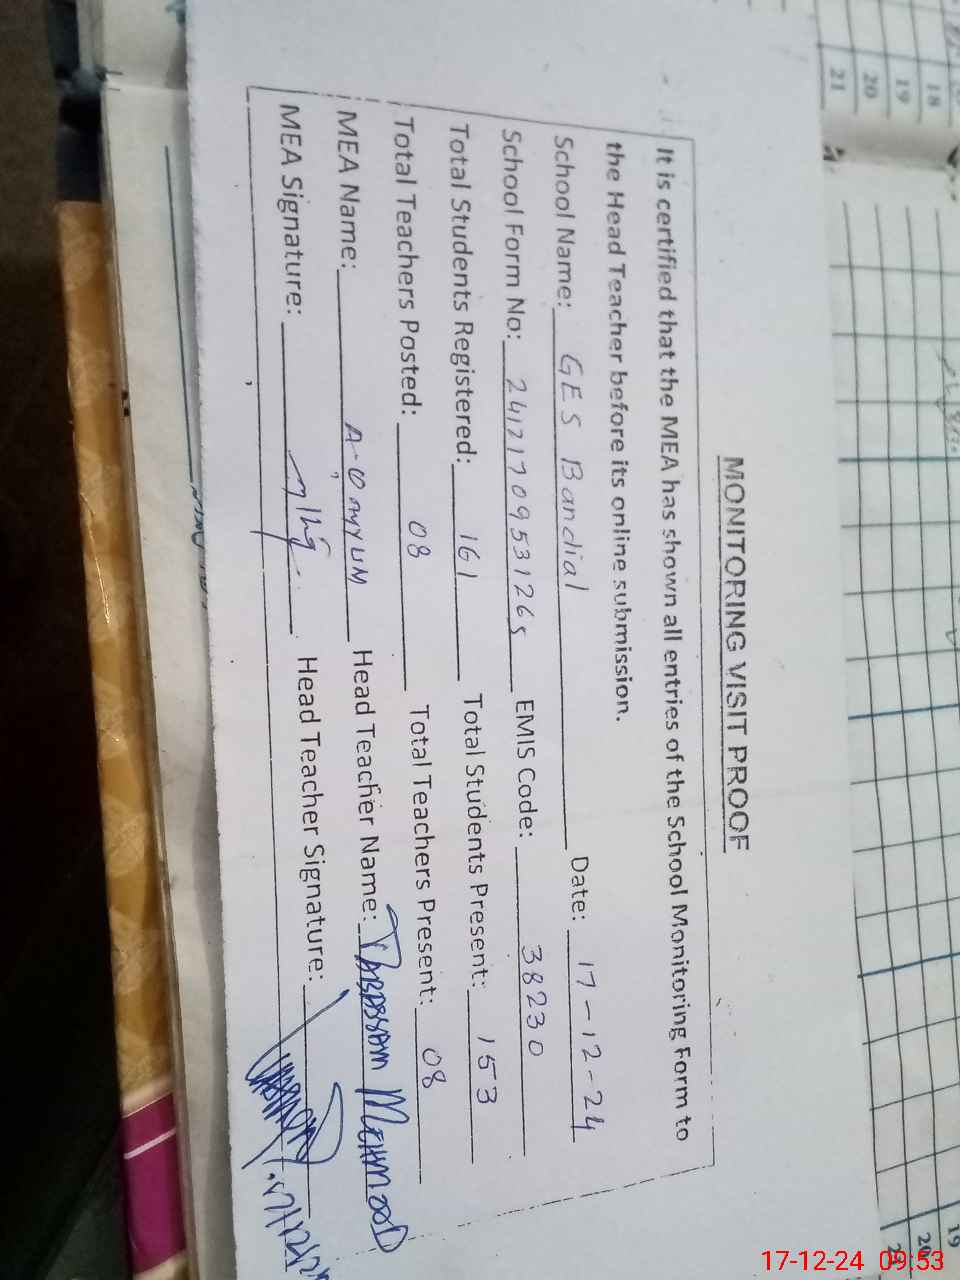 MONITORING VISIT PROOF
It is certified that the MEA has shown all entries of the School Monitoring Form to
the Head Teacher before its online submission.
School Name: GES Bandial Date: 17-12-24
School Form No: EMIS Code: 38230
Total Students Registered: 161 Total Students Present: 153
Total Teachers Posted: 08 Total Teachers Present: 08
MEA Name: A-Qayyum Head Teacher Name: TABASSAM MEHMOOD
MEA Signature: Head Teacher Signature:
18
19
20
21
19
20
21
17-12-24 09:53